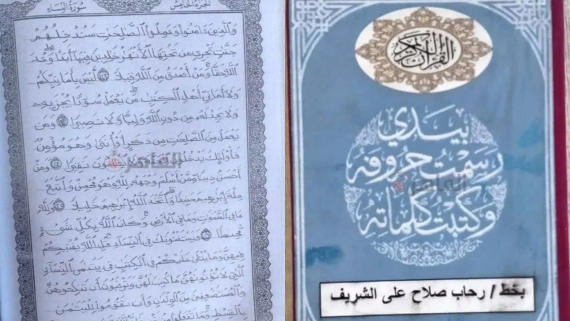 الجزء الخامس
سورة النساء
والذين ءامنوا وعملوا الصلحت سندخلهم
جنت تجري من تحتها الأنهر خلدين فيها أبدا وعد
الله حقا ومن أصدق من الله قيلا ليس بأمانيكم
ولا أماني أهل الكتب من يعمل سوءا يجز به
ولا يجد له من دون الله وليا ولا نصيرا ومن
يعمل من الصلحت من ذكر أو أنثى وهو مؤمن
فأولئك يدخلون نقيرا ومن
أحسن دينا ممن أسلم وجهه لله وهو محسن واتبع
ملة إبرهيم حنيفا واتخذ الله إبرهيم خليلا ولله
ما في السموت وما في الأرض وكان الله بكل شيء
محيطا ويستفتونك في النساء قل الله يفتيكم
فيهن وما يتلى عليكم في الكتب في يتمى النساء
التي لا تؤتونهن ما كتب لهن وترغبون أن تنكحوهن
والمستضعفين من الولدن وأن تقوموا لليتمى
بالقسط وما تفعلوا من
القرآن الكريم
بيدي
رسمت حروفه
وكتبت كلماته
بخط / رحاب صلاح على الشريف